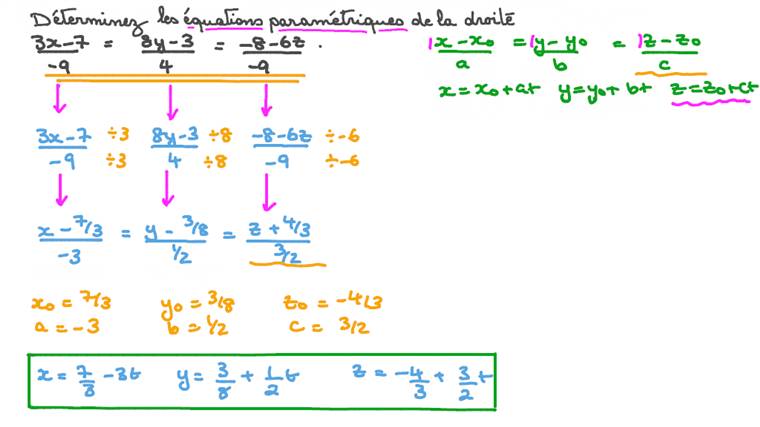 Déterminez les équations paramétriques de la droite
3x-7/-9 = 8y-3/4 = -8-6z/-9 .
1x-x₀/a = 1y-y₀/b = 1z-z₀/c
x=x₀+at y=y₀+bt z=z₀+ct
3x-7/-9 ÷3/÷3 8y-3/4 ÷8/÷8 -8-6z/-9 ÷-6/÷-6
x-7/3/-3 = y-3/8/1/2 = z+4/3/3/2
x₀=7/3 y₀=3/8 z₀=-4/3
a=-3 b=1/2 c=3/2
x=7/3-3t y=3/8+1/2t z=-4/3+3/2t